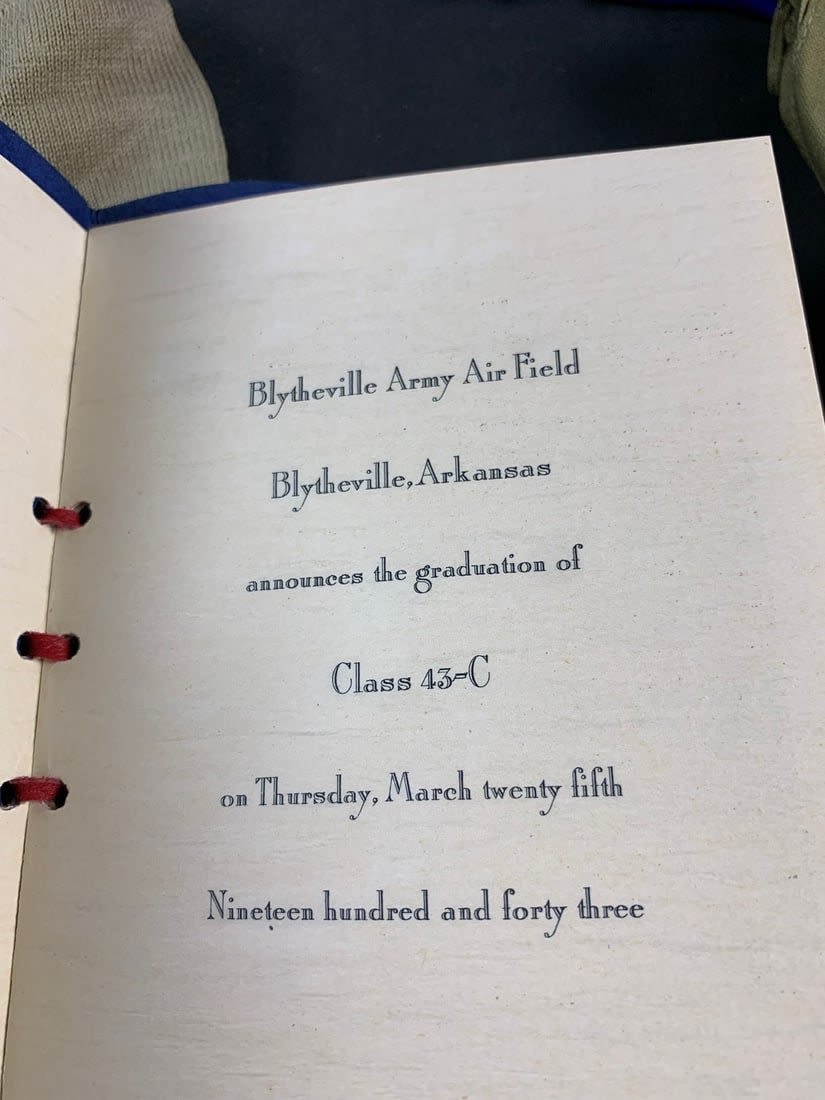 Blytheville Army Air Field
Blytheville, Arkansas
announces the graduation of
Class 43-C
on Thursday, March twenty fifth
Nineteen hundred and forty three